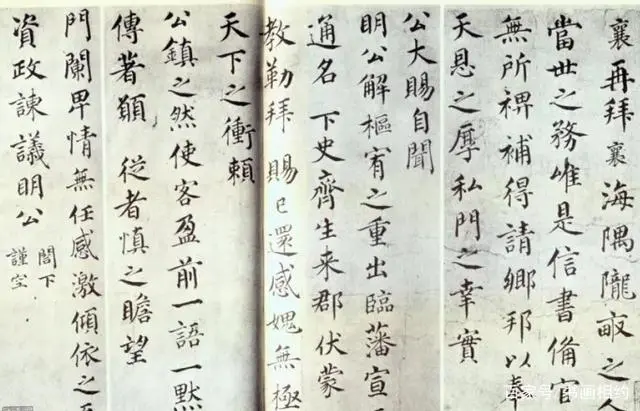 襄再拜襄海隅隴畝之人
當世之務唯是信書備官
無所裨補得請鄉邦以奉
天恩之厚私門之幸實
公大賜自聞
明公解樞宥之重出臨藩宣
通名 下史齊生来郡伏蒙
教勒拜 賜已還感愧無極
天下之衝賴
公鎮之然使客盈前一語一默
傳著願 從者慎之瞻望
門闌卑情無任感激傾依之
資政諫議明公
閤下
謹空
百家号/书画相约